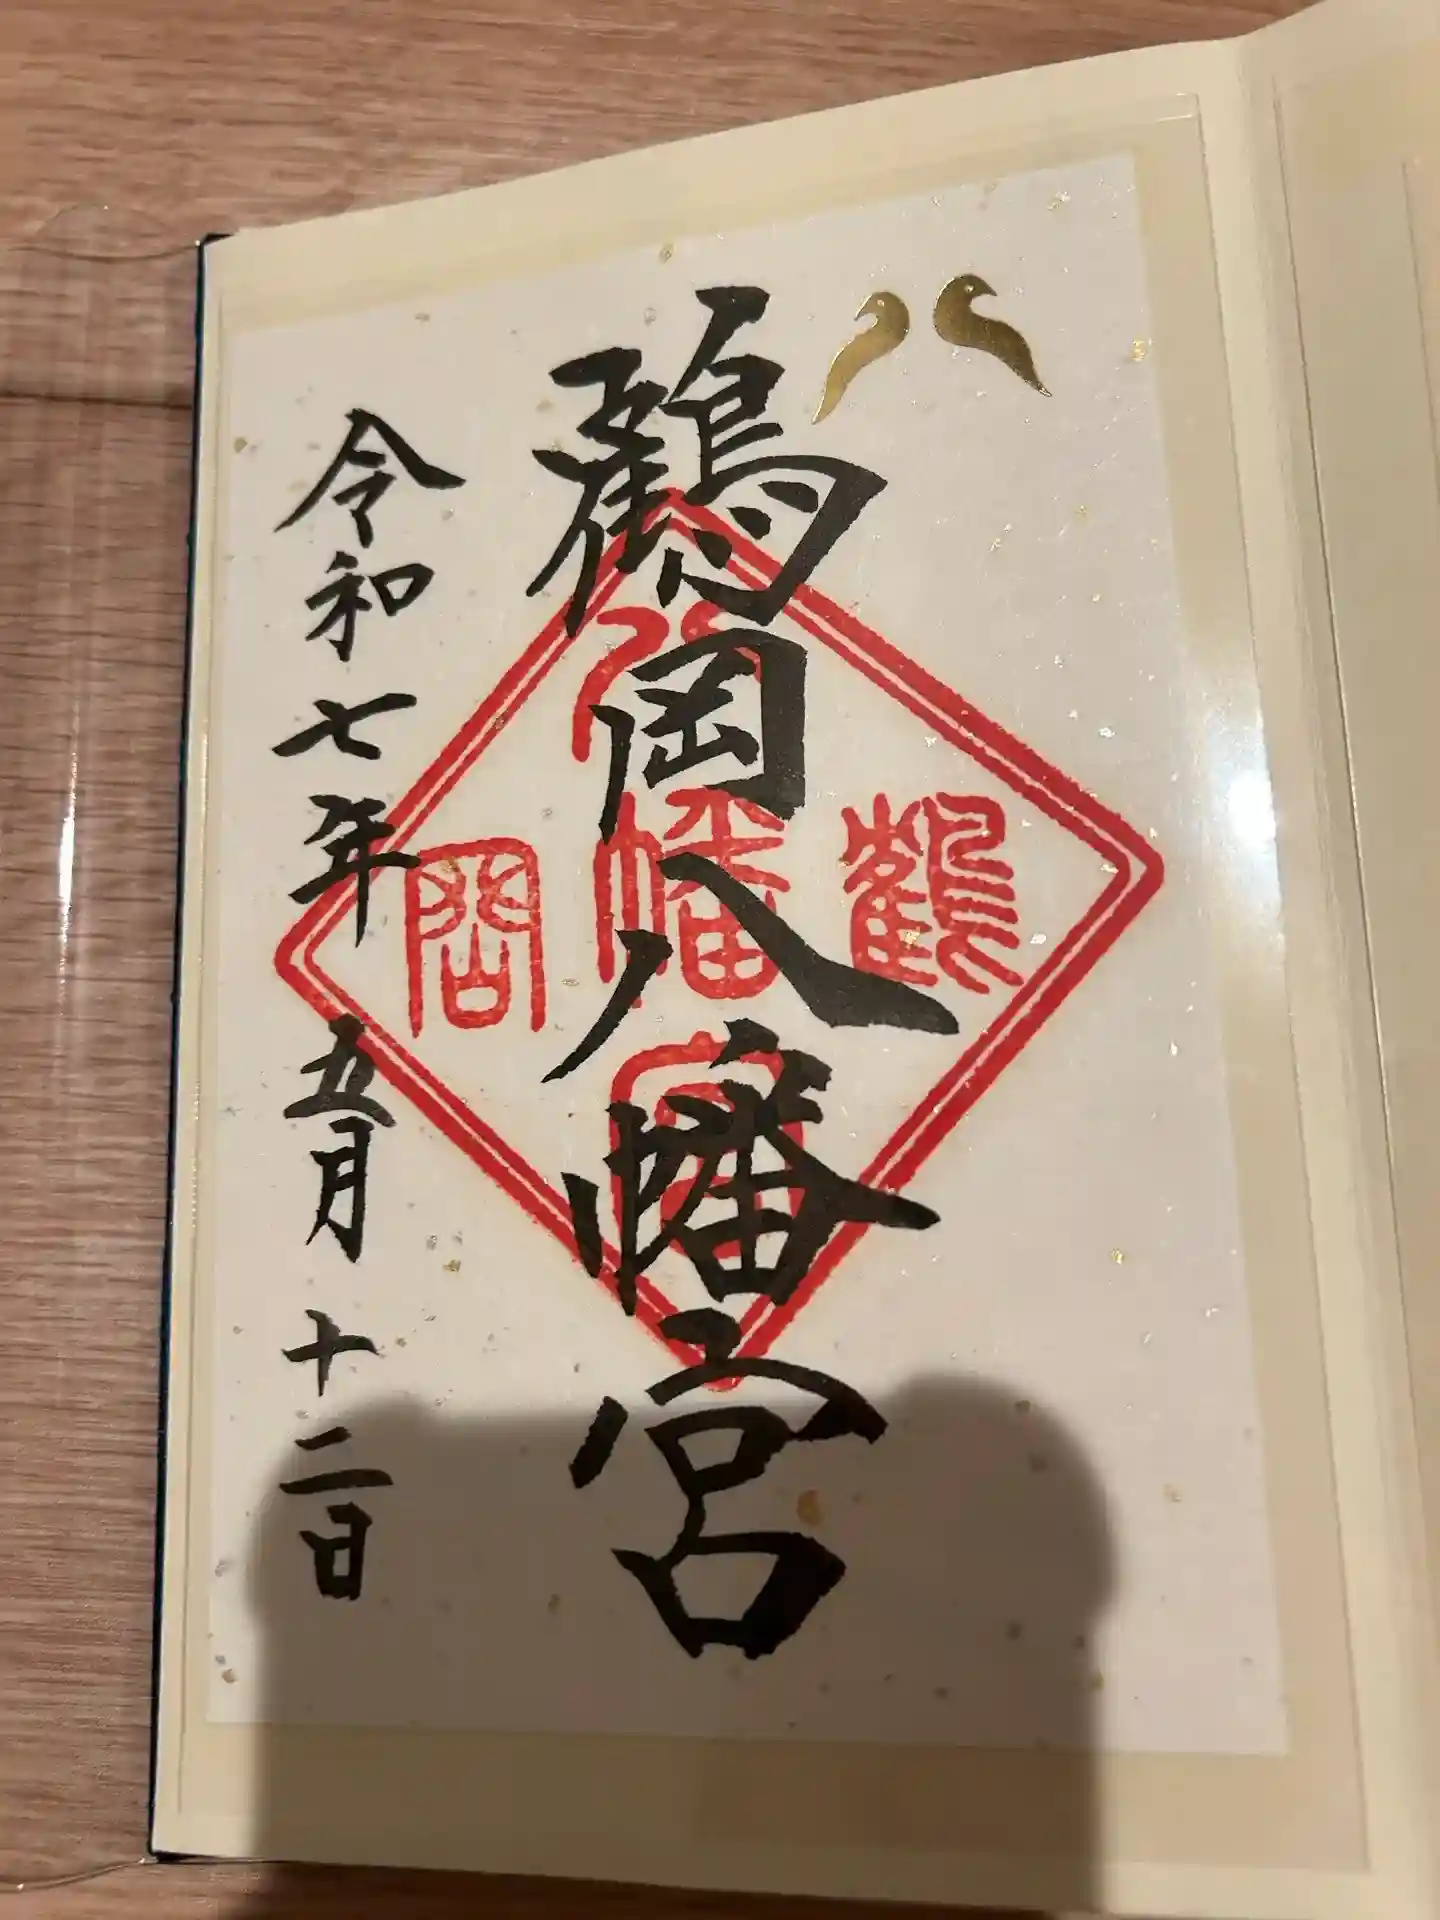 鶴岡八幡宮
令和七年五月十二日
鶴
八幡宮
岡